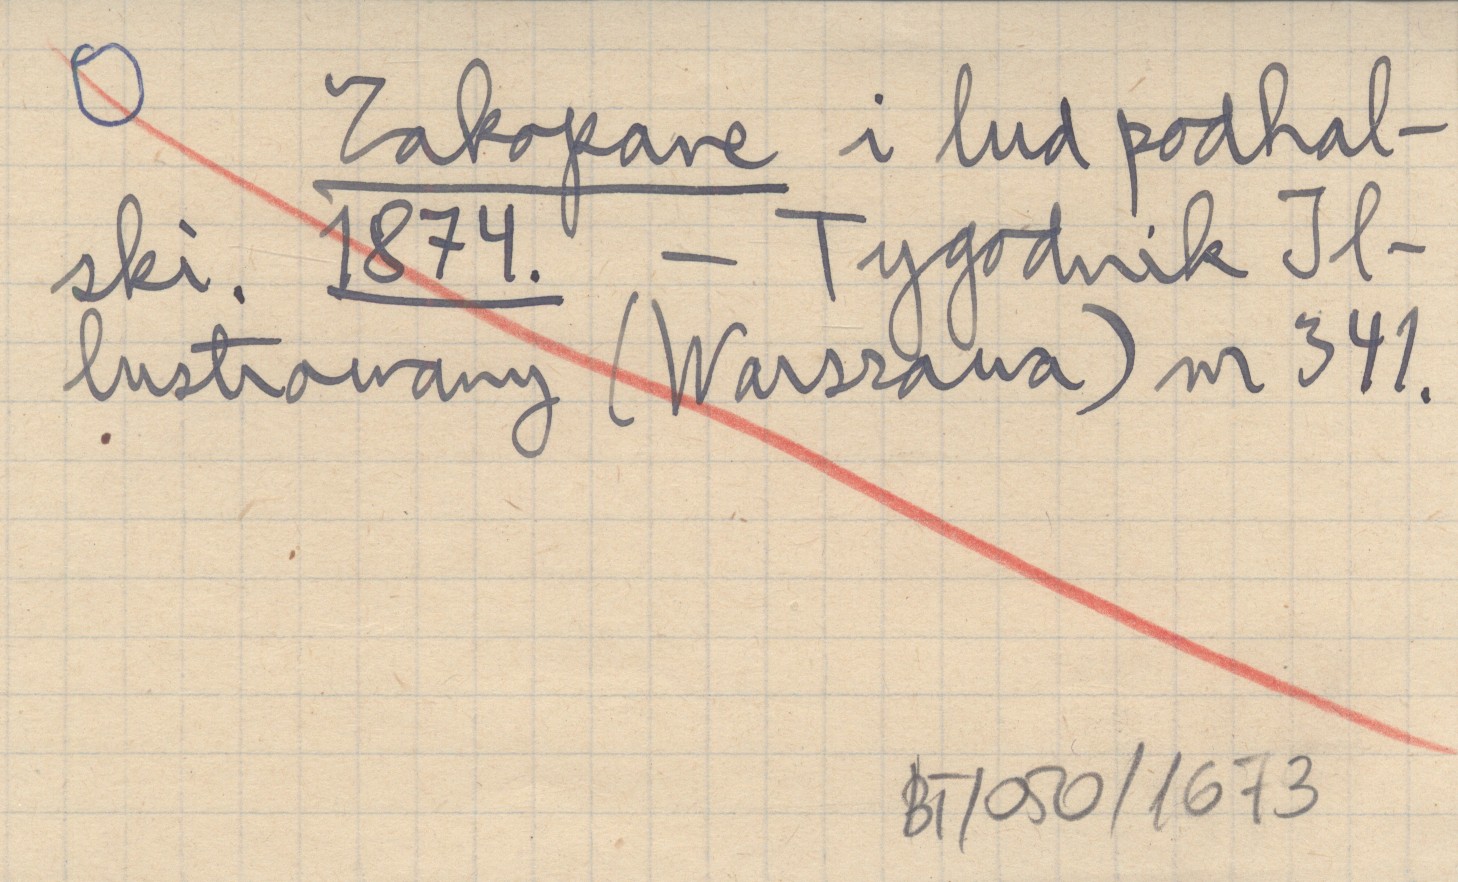 Zakopane i lud podhal-
ski. 1874. — Tygodnik Il-
lustrowany (Warszawa) nr 341.
BT/050/1673